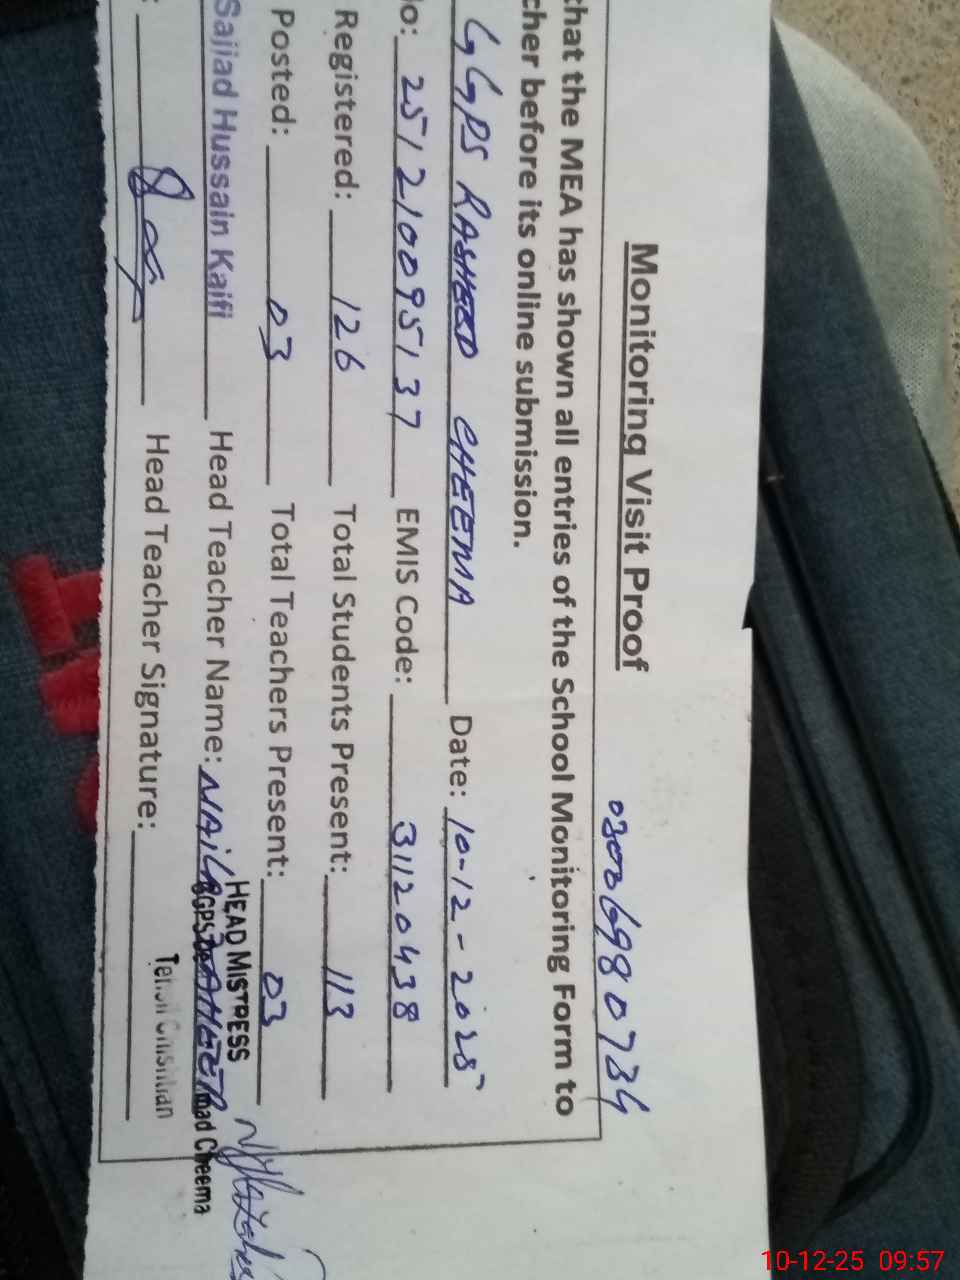 Monitoring Visit Proof
0300 6980734
that the MEA has shown all entries of the School Monitoring Form to
cher before its online submission.
GGPS RASHEED CHEEMA Date: 10-12-2025
No: 251210095137 EMIS Code: 31120438
Registered: 126 Total Students Present: 113
Posted: 03 Total Teachers Present: 03
Sajjad Hussain Kaifi Head Teacher Name: NAILA
HEAD MISTRESS
GGPS Cheema
Head Teacher Signature:
Tehsil Chishtian
10-12-25 09:57